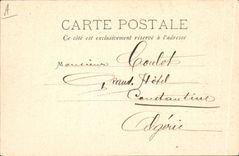 A
CARTE POSTALE
Ce côté est exclusivement réservé à l'adresse
Monsieur Coulet
Grand Hôtel
Constantine
Algérie